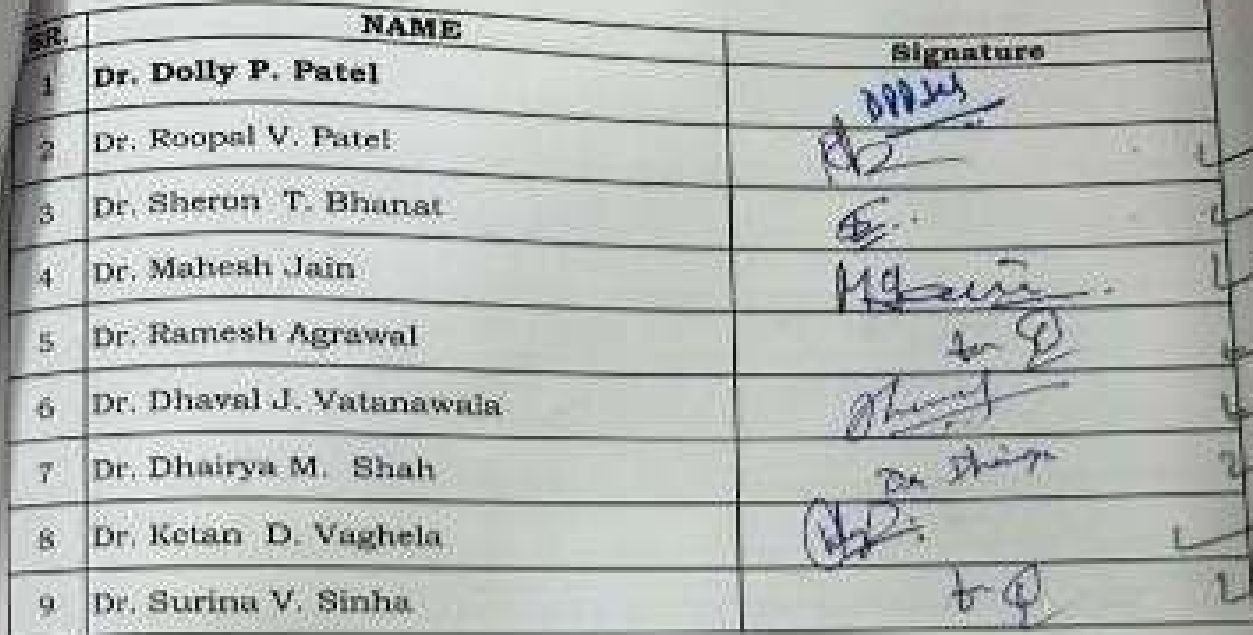 SR. NAME Signature
1 Dr. Dolly P. Patel
2 Dr. Roopal V. Patel
3 Dr. Sherun T. Bhanat
4 Dr. Mahesh Jain
5 Dr. Ramesh Agrawal
6 Dr. Dhaval J. Vatanawala
7 Dr. Dhairya M. Shah
8 Dr. Ketan D. Vaghela
9 Dr. Surina V. Sinha